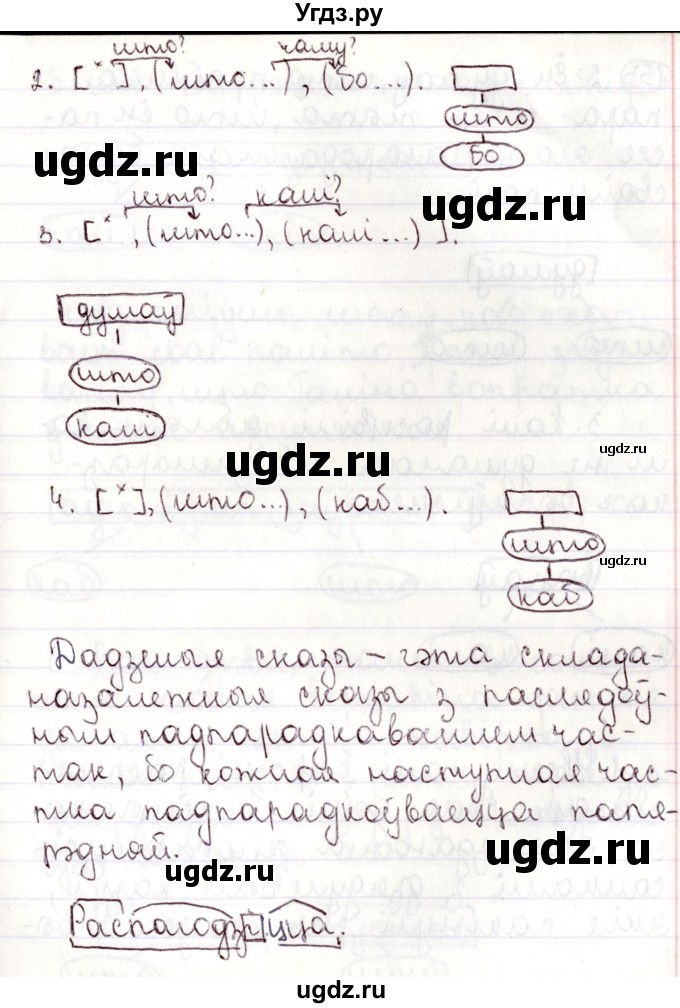 Угдз.ру
што? чаму?
2. [ˣ], (што...), (бо...).
што
бо
ugdz.ru
ugdz.ru
што? калі?
3. [ˣ, (што...), (калі...)].
думаў
што
калі
ugdz.ru
ugdz.ru
4. [ˣ], (што...), (каб...).
што
каб
ugdz.ru
ugdz.ru
Дадзеныя сказы – гэта склада-
назалежныя сказы з паслядоў-
ным падпарадкаваннем час-
так, бо кожная наступная час-
тка падпарадкоўваецца папя-
рэдняй.
ugdz.ru
ugdz.ru
ugdz.ru
ugdz.ru